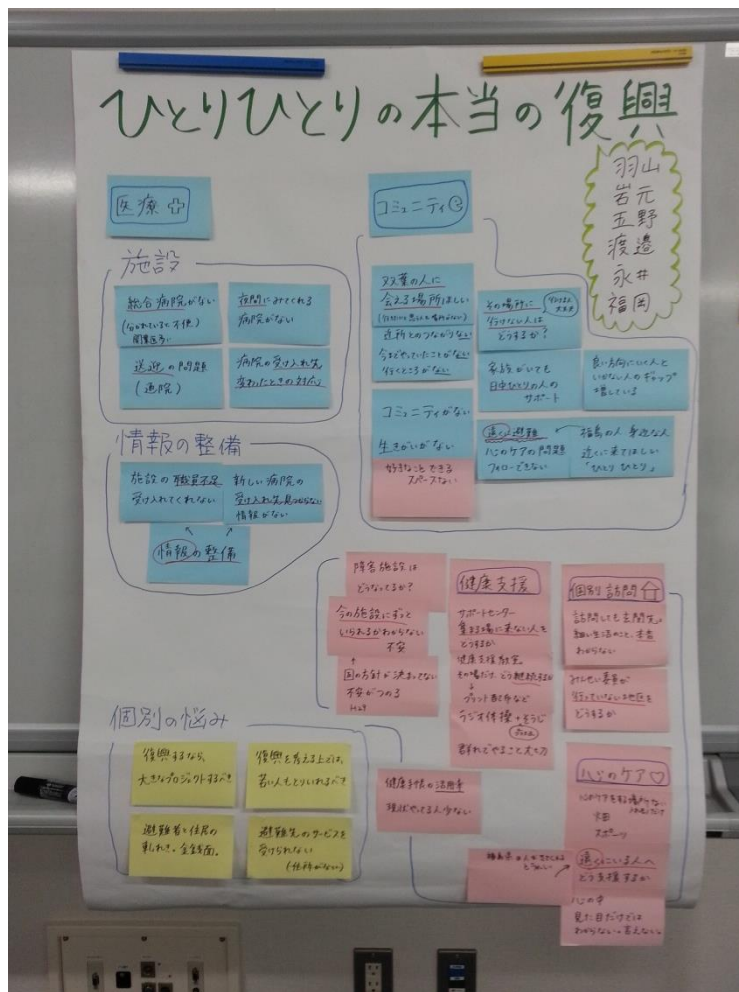 ひとりひとりの本当の復興
羽山
岩元
玉野
渡邉
永井
福岡
医療
施設
総合病院がない
(分かれていると不便)
夜間にみてくれる
病院がない
送迎の問題
(通院)
病院の受け入れ先
変わったときの対応
情報の整備
施設の職員不足
受け入れてくれない
新しい病院の
受け入れ先見つからない
情報がない
情報の整備
コミュニティ
双葉の人に
会える場所ほしい
近所とのつながりない
今までやっていたことがない
行くところがない
その場所に
行けない人は
どうするか?
家族がいても
日中ひとりの人の
サポート
良い方向にいく人と
いかない人のギャップ
増している
コミュニティがない
生きがいがない
好きなことできる
スペースない
遠くに避難
心のケアの問題
フォローできない
福島の人 身近な人
近くに来てほしい
「ひとり ひとり」
障害施設は
どうなってるか?
今の施設にずっと
いられるかわからない
不安
国の方針が決まってない
不安がつのる
健康支援
サポートセンター
集まる場に来ない人を
どうするか
健康支援教室
その場だけ、どう継続するか
プリント配布など
ラジオ体操+そうじ
群れでやること大切
個別訪問
訪問しても玄関先。
細い生活のこと、本音
わからない
みんせい委員が
行っていない地区を
どうするか
個別の悩み
復興するなら、
大きなプロジェクトするべき
復興を考える上では、
若い人もとりいれるべき
避難者と住民の
まさつ。金銭面。
避難先のサービスを
受けられない
健康手帳の活用率
現状やってる人少ない
心のケア
心のケアをする場所ない
畑
スポーツ
遠くにいる人へ
どう支援するか
心の中
見た目だけでは
わからない。言えない。